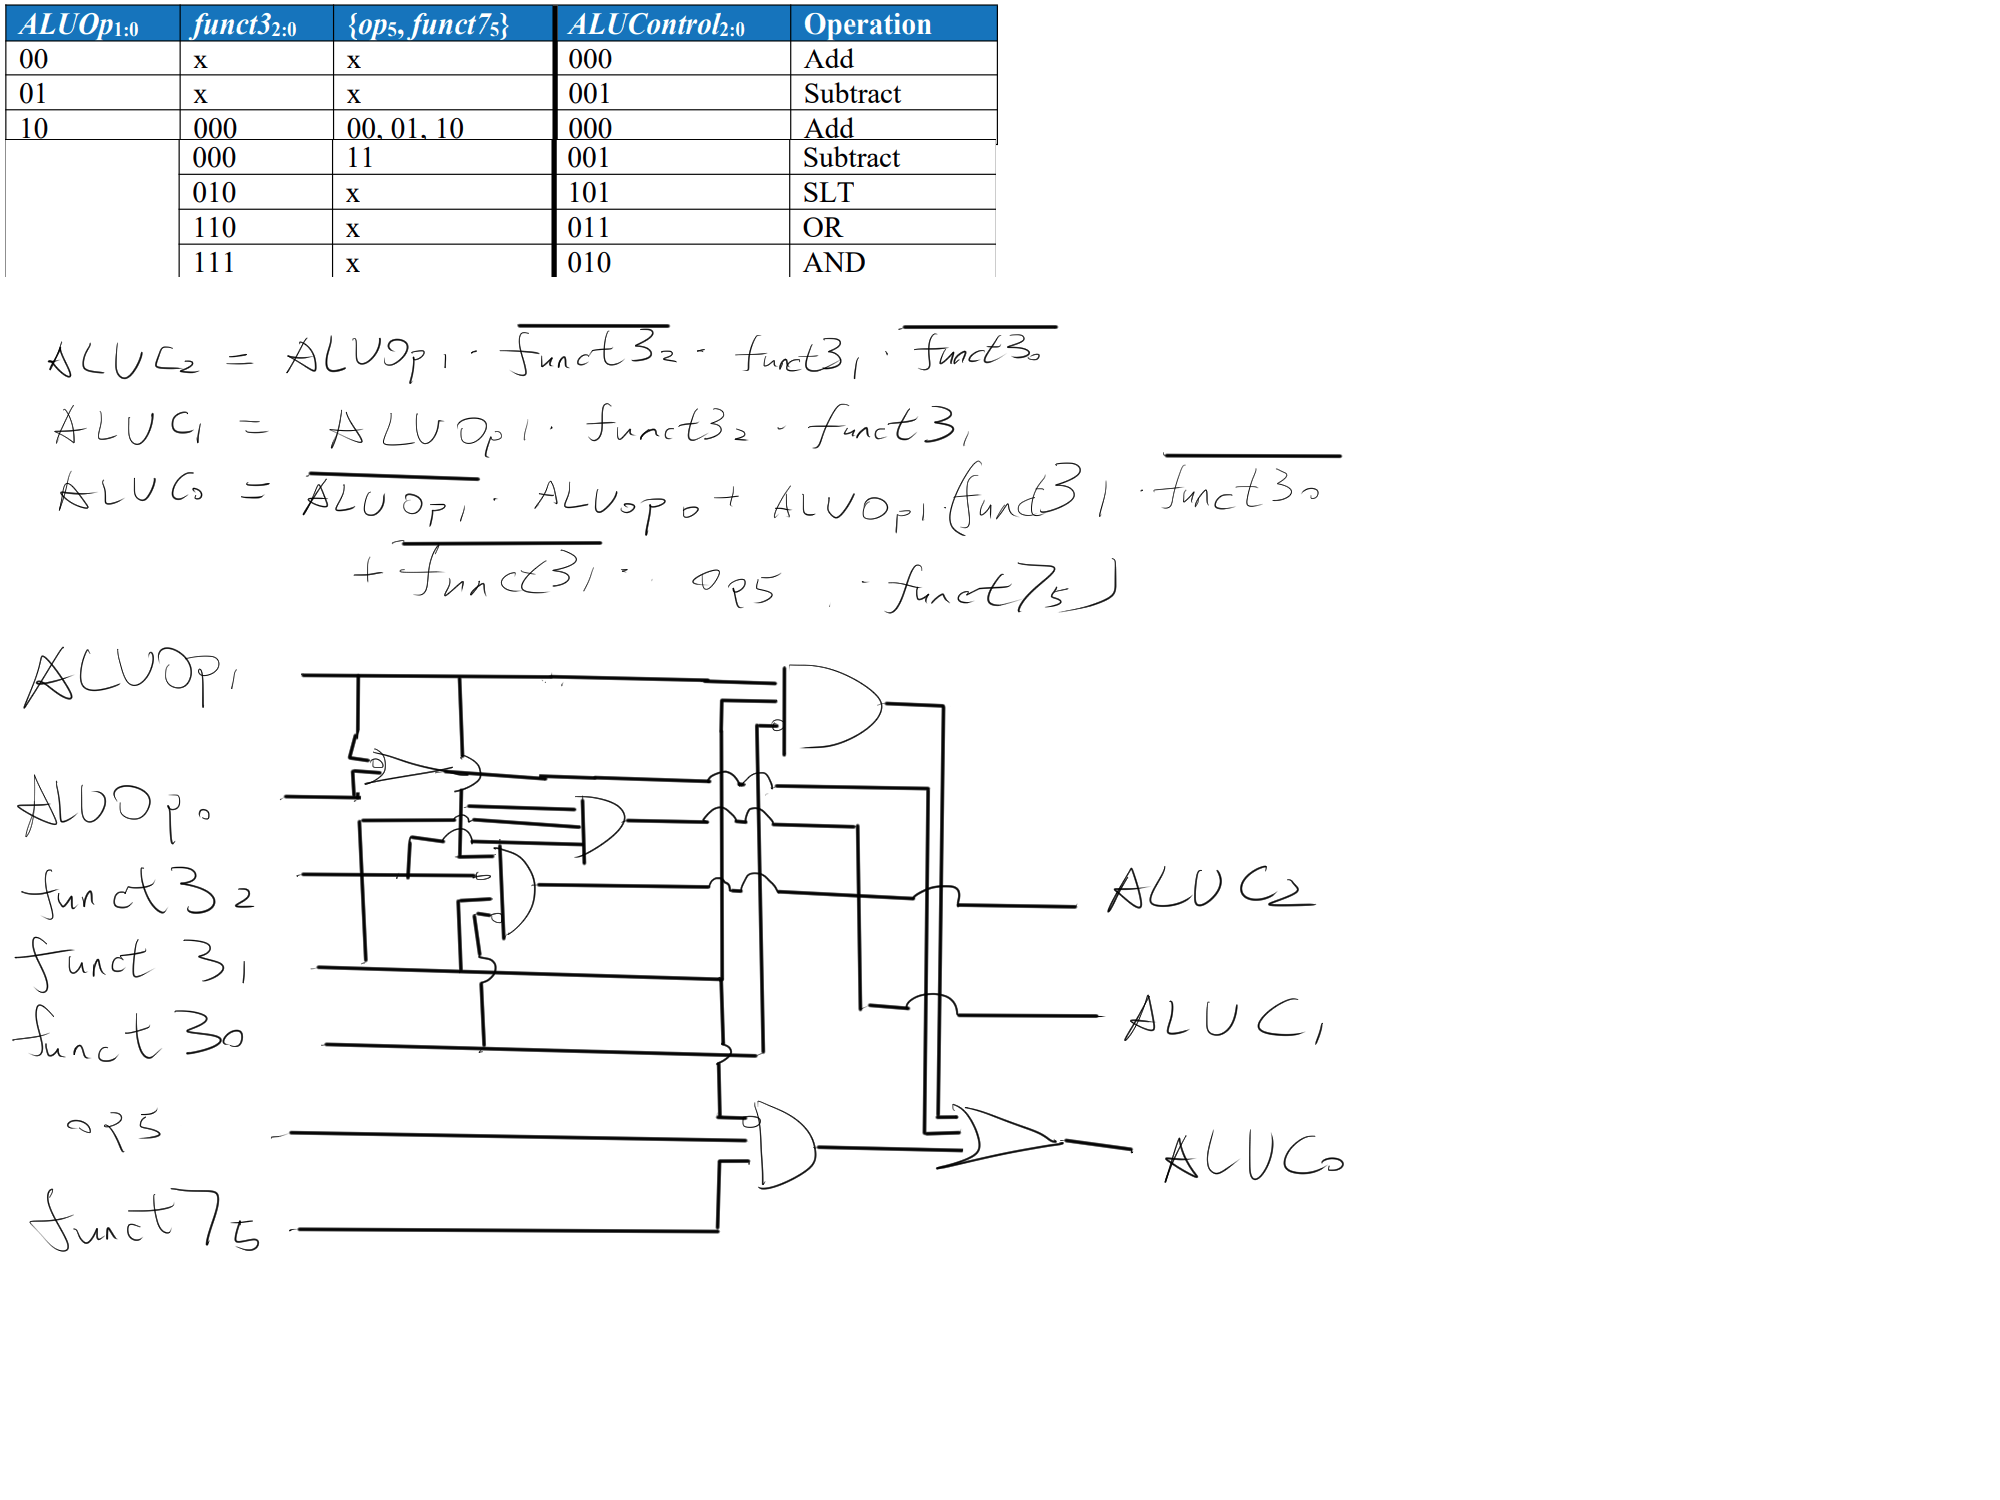 ALUOp1:0 funct32:0 {op5, funct75} ALUControl2:0 Operation
00 x x 000 Add
01 x x 001 Subtract
10 000 00, 01, 10 000 Add
000 11 001 Subtract
010 x 101 SLT
110 x 011 OR
111 x 010 AND
ALUC₂ = ALUOp₁ · f̅u̅n̅c̅t̅3̅₂ · funct3₁ · f̅u̅n̅c̅t̅3̅₀
ALUC₁ = ALUOp₁ · funct3₂ · funct3₁
ALUC₀ = A̅L̅U̅O̅p̅₁ · ALUOp₀ + ALUOp₁ · (funct3₁ · f̅u̅n̅c̅t̅3̅₀
+ f̅u̅n̅c̅t̅3̅₁ · op5 · funct7₅)
ALUOp₁
ALUOp₀
funct3₂
ALUC₂
funct3₁
ALUC₁
funct3₀
op5
ALUC₀
funct7₅